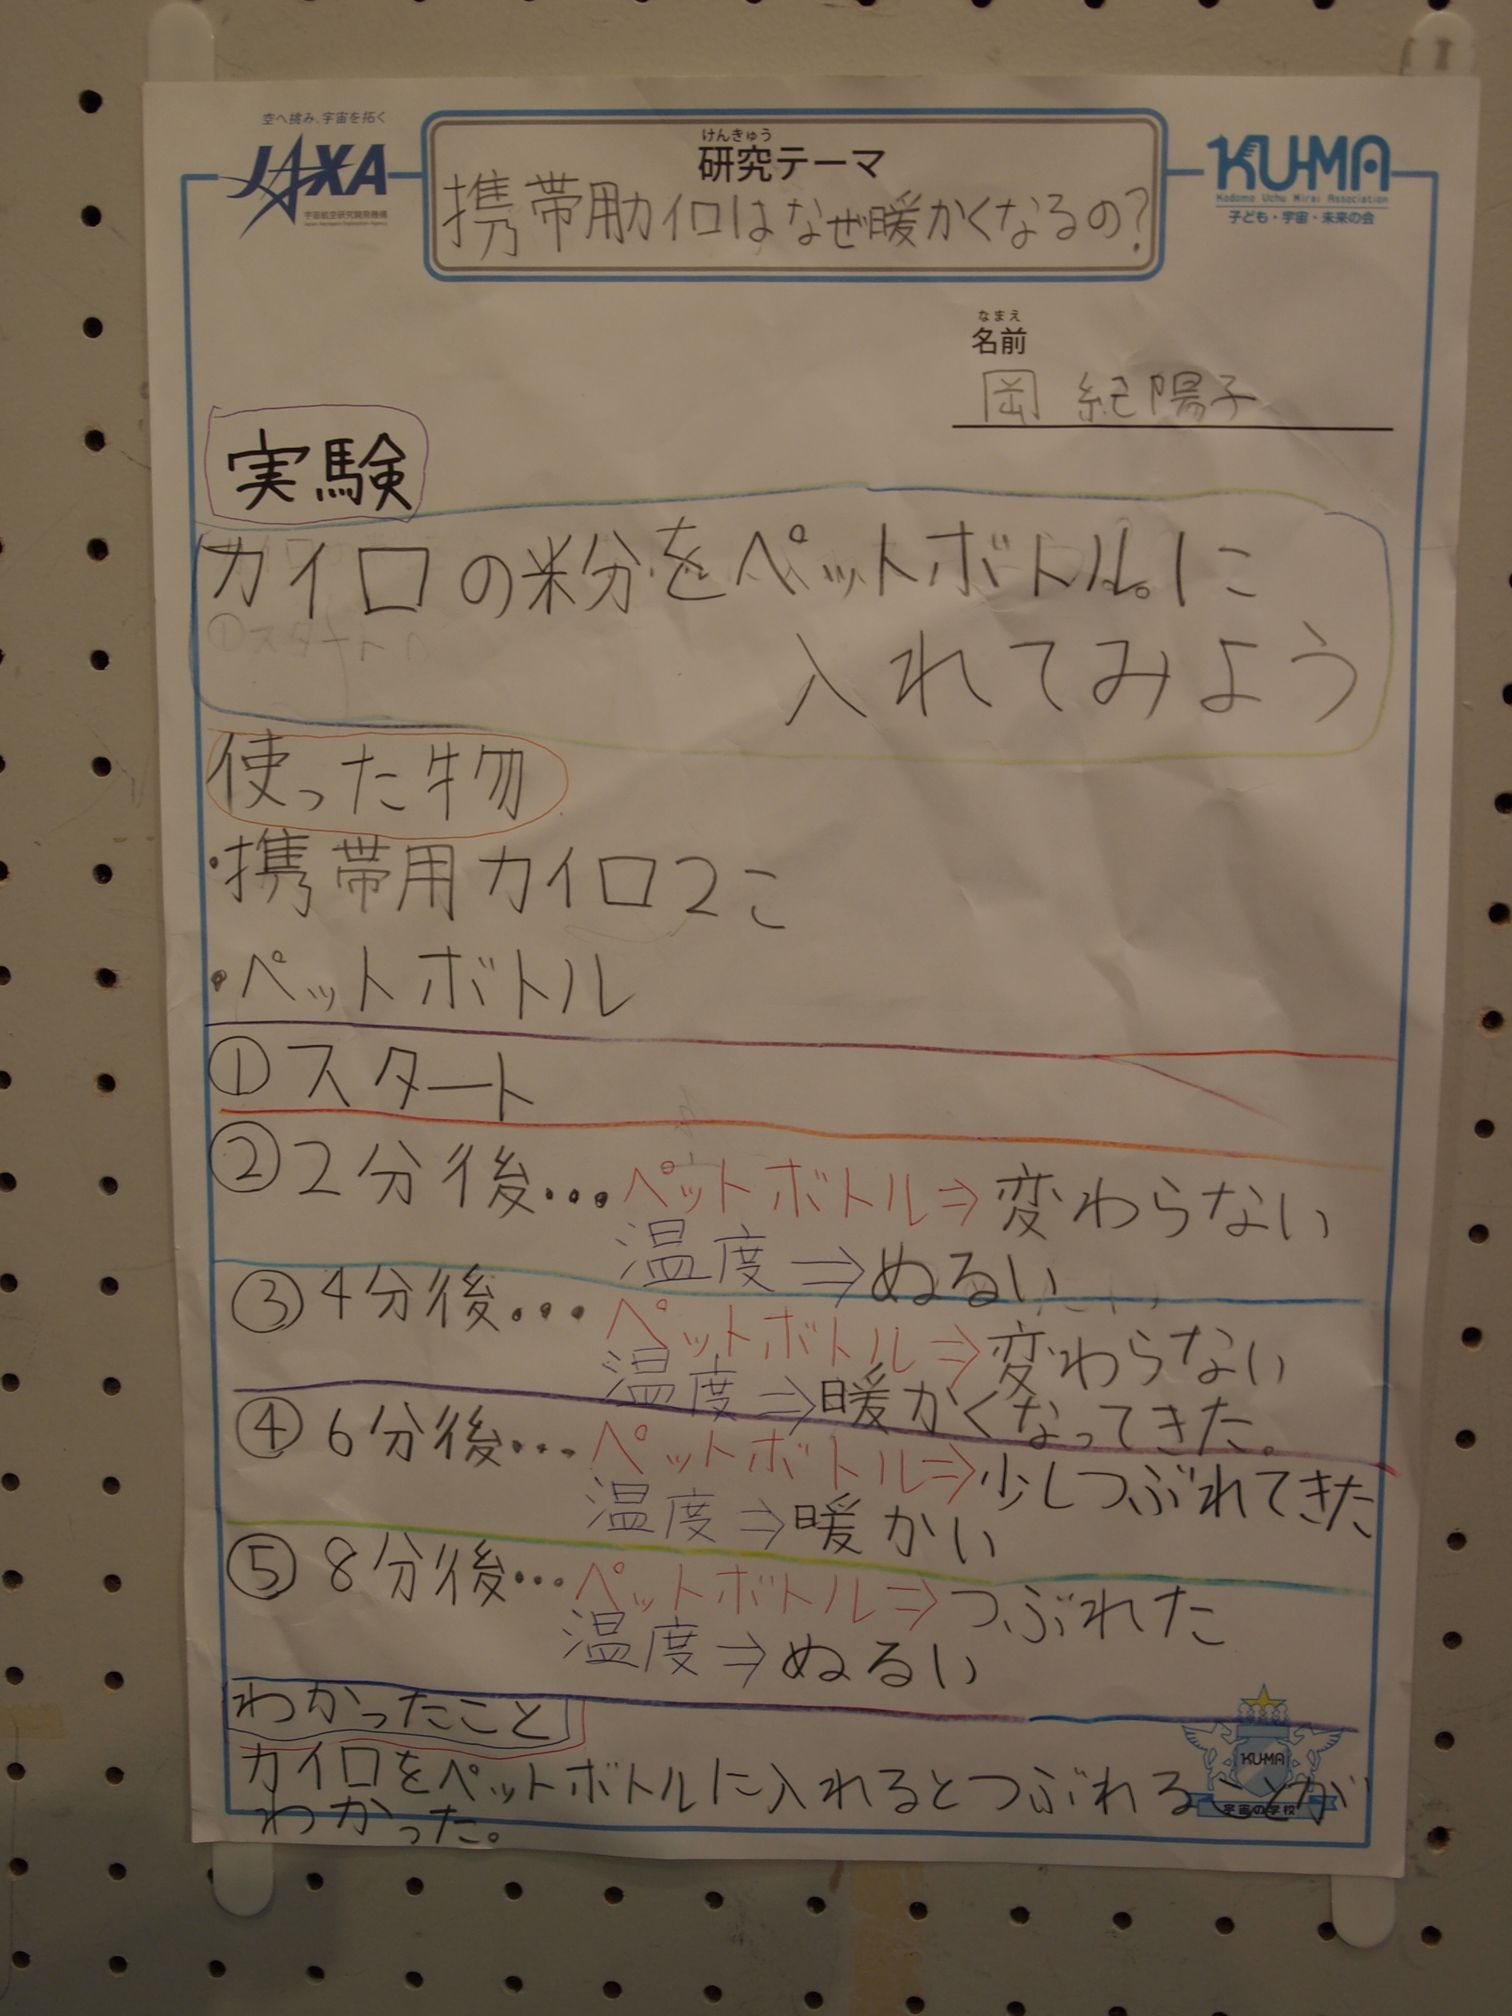 空へ挑み、宇宙を拓く
JAXA
宇宙航空研究開発機構
Japan Aerospace Exploration Agency
けんきゅう
研究テーマ
携帯用カイロはなぜ暖かくなるの?
KU-MA
Kodomo Uchu Mirai Association
子ども・宇宙・未来の会
なまえ
名前
岡 紀陽子
実験
カイロの粉をペットボトルに
入れてみよう
①スタート
使った物
・携帯用カイロ2こ
・ペットボトル
①スタート
②2分後...ペットボトル⇒変わらない
温度⇒ぬるい
③4分後...ペットボトル⇒変わらない
温度⇒暖かくなってきた。
④6分後...ペットボトル⇒少しつぶれてきた
温度⇒暖かい
⑤8分後...ペットボトル⇒つぶれた
温度⇒ぬるい
わかったこと
カイロをペットボトルに入れるとつぶれることが
わかった。
KU-MA
宇宙の学校